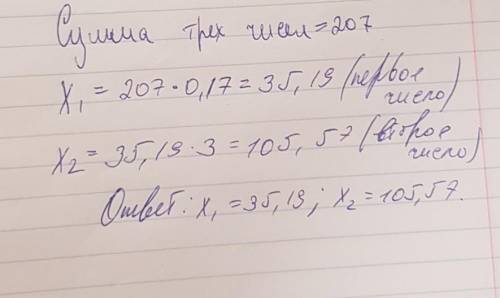 Сумма трех чисел=207
X₁ = 207·0,17=35,19 (первое число)
X₂ = 35,19·3=105,57 (второе число)
Ответ: X₁=35,19; X₂=105,57.